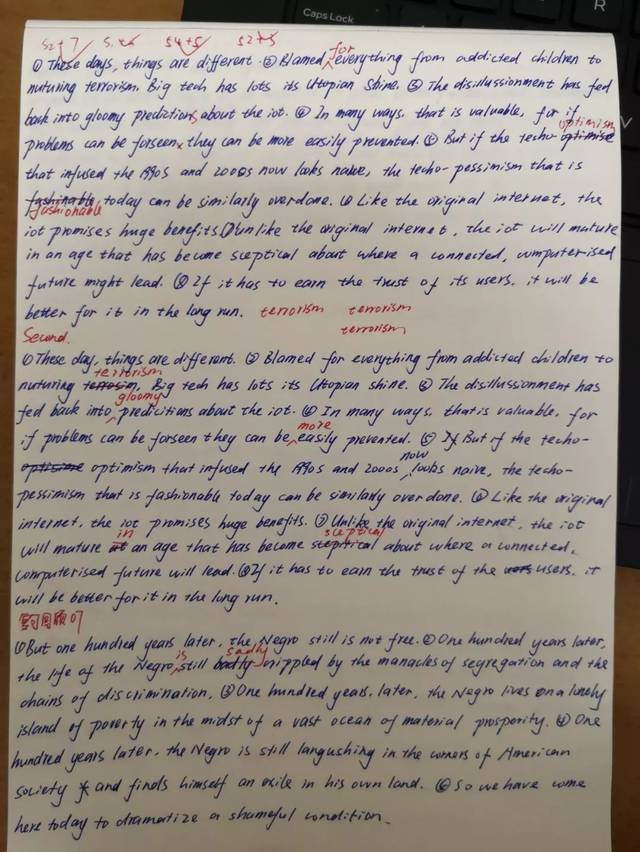 Caps Lock
R
V
S2+7 S1+6 S4+5 S2+5
① These days, things are different. ② Blamed for everything from addicted children to
nuturing terrorism. Big tech has lots its Utopian shine. ③ The disillussionment has fed
back into gloomy predictions about the iot. ④ In many ways, that is valuable, for if
problems can be forseen, they can be more easily prevented. ⑤ But if the techo-optimise optimism
that infused the 1990s and 2000s now looks naive, the techo-pessimism that is
fashinable fashionable today can be similarly overdone. ⑥ Like the original internet, the
iot promises huge benefits. ⑦ Unlike the original internet, the iot will mature
in an age that has become sceptical about where a connected, computerised
future might lead. ⑧ If it has to earn the trust of its users. it will be
better for it in the long run. terrorism terrorism
terrorism
Second.
① These day, things are different. ② Blamed for everything from addicted children to
nuturing terrosim terrorism, Big tech has lots its Utopian shine. ③ The disillussionment has
fed back into gloomy predictions about the iot. ④ In many ways, that is valuable, for
if problems can be forseen they can be more easily prevented. ⑤ If But if the techo-
optisime optimism that infused the 1990s and 2000s now looks naive, the techo-
pessimism that is fashionable today can be similarly overdone. ⑥ Like the original
internet, the iot promises huge benefits. ⑦ Unlike the original internet, the iot
will mature at in an age that has become sceptical about where a connected,
computerised future will lead. ⑧ If it has to earn the trust of the users. it
will be better for it in the long run.
回顾07
① But one hundred years later, the Negro still is not free. ② One hundred years later,
the life of the Negro is still badly sadly crippled by the manacles of segregation and the
chains of discrimination. ③ One hundred years. later, the Negro lives on a lonely
island of poverty in the midst of a vast ocean of material prosperity. ④ One
hundred years later. the Negro is still langushing in the corners of American
society and finds himself an exile in his own land. ⑥ So we have come
here today to dramatize a shameful condition.